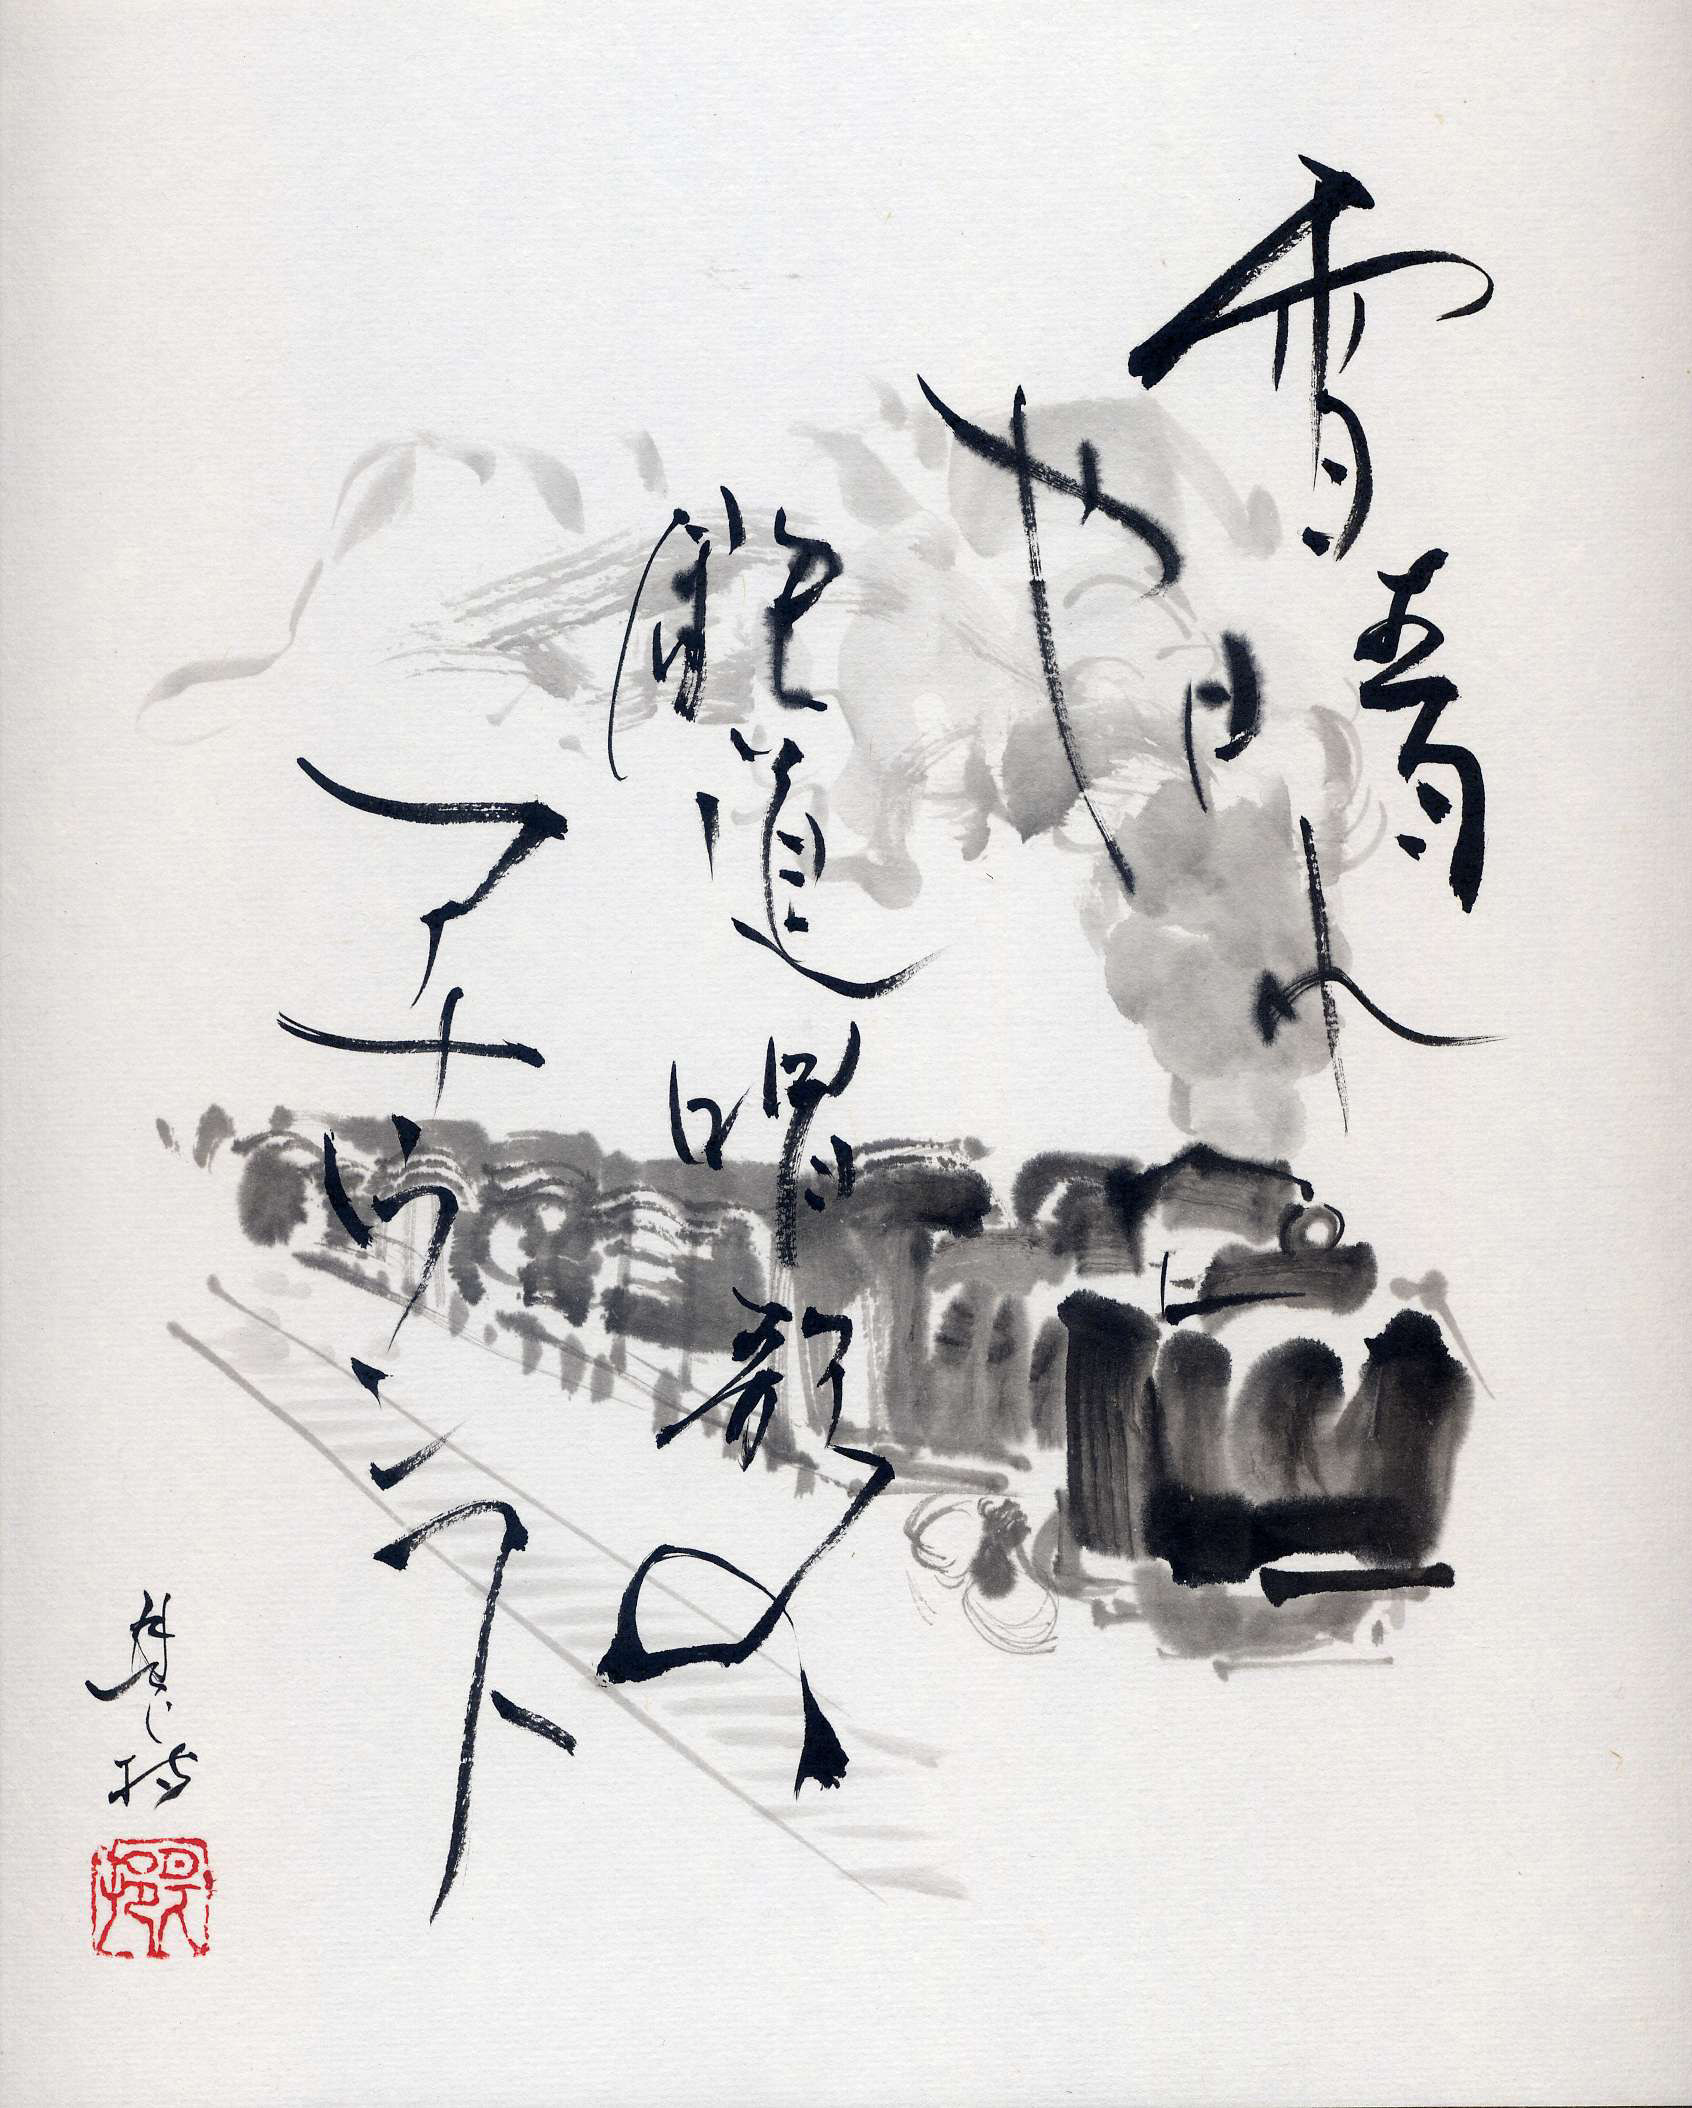 雪晴れ
や
鉄道唱歌
アナウンス